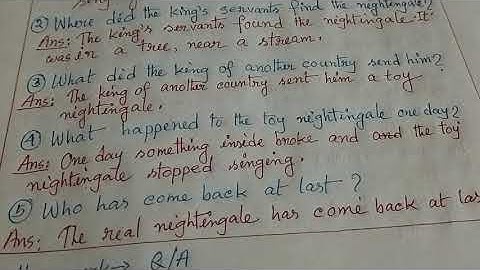 ② Where did the king's servants find the nightengale?
Ans: The king's servants found the nightingale. It
was in a tree, near a stream.
③ What did the king of another country send him?
Ans: The king of another country sent him a toy
nightingale.
④ What happened to the toy nightingale one day?
Ans: One day something inside broke and and the toy
nightingale stopped singing.
⑤ Who has come back at last?
Ans: The real nightingale has come back at las
→ Q/A